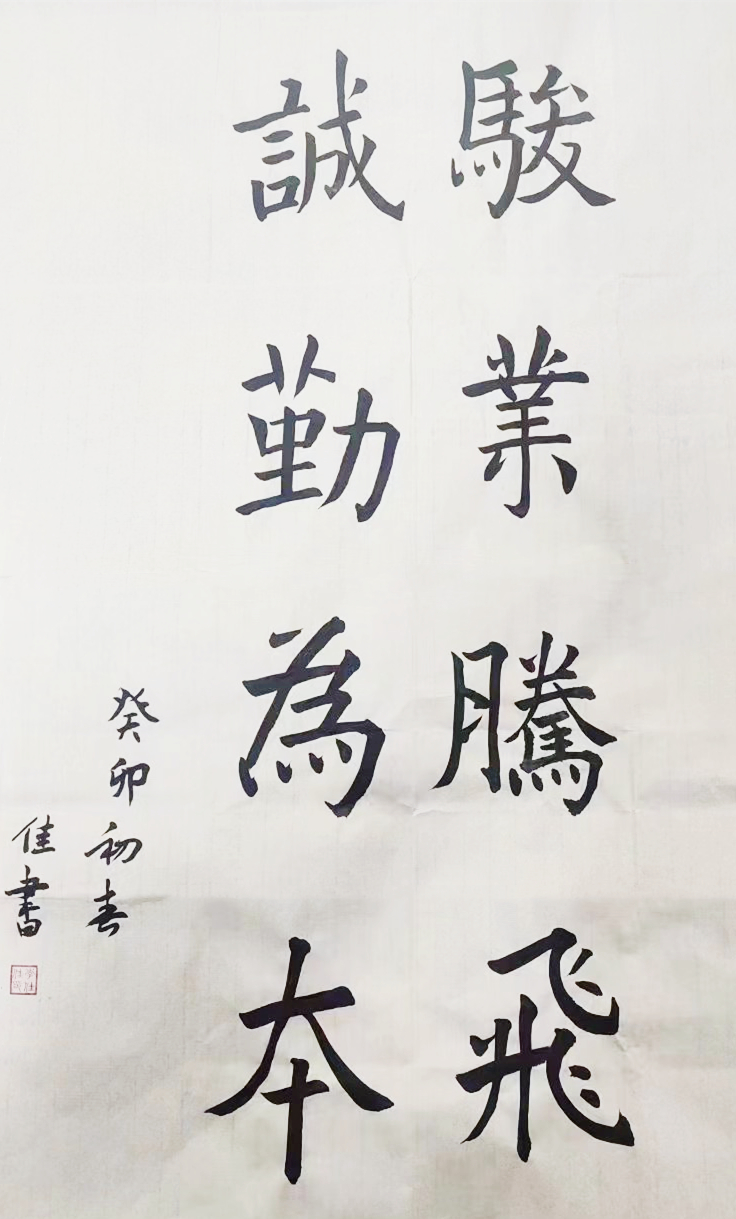 駿業騰飛
誠勤為本
癸卯初春
佳書